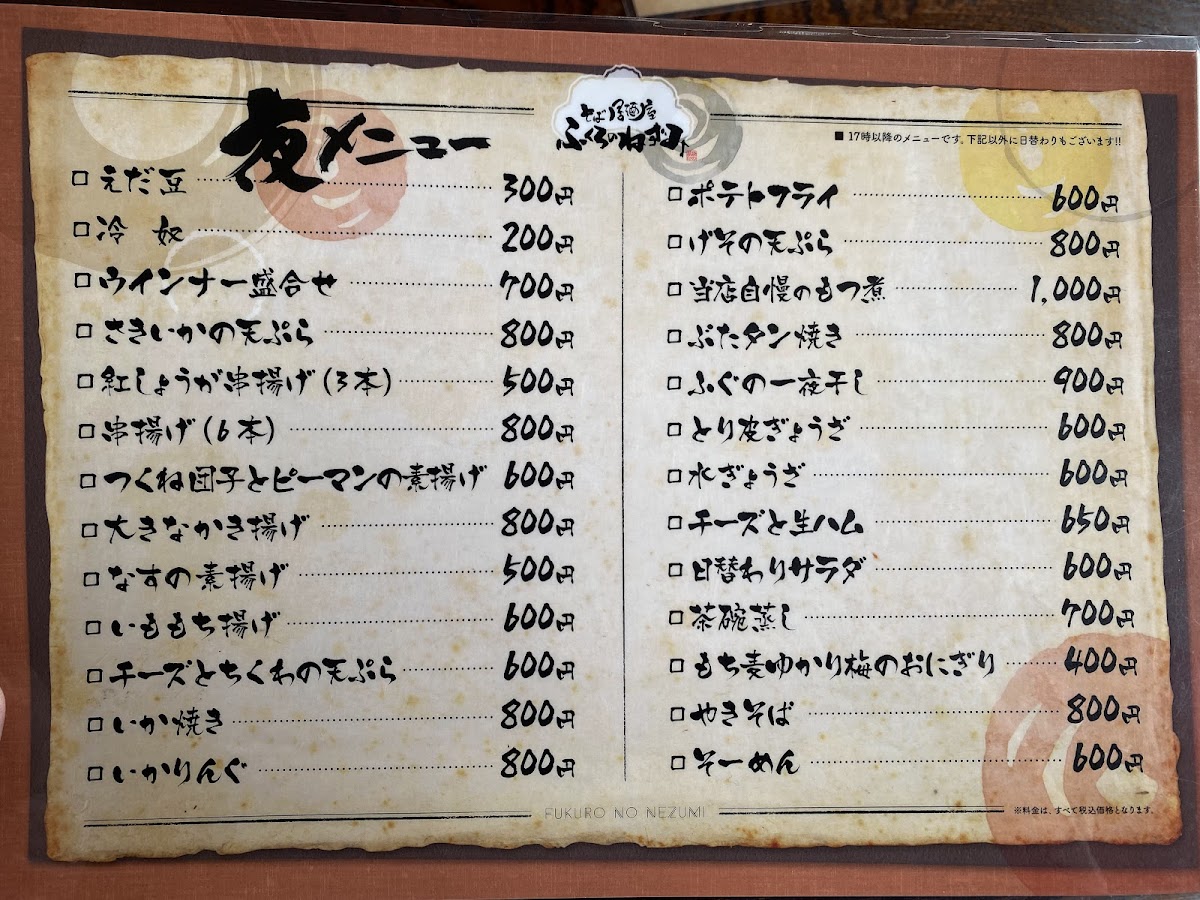 夜メニュー
そば居酒屋
ふくろのねずみ
■ 17時以降のメニューです。下記以外に日替わりもございます!!
□えだ豆 300円
□冷 奴 200円
□ウインナー盛合せ 700円
□さきいかの天ぷら 800円
□紅しょうが串揚げ(3本) 500円
□串揚げ(6本) 800円
□つくね団子とピーマンの素揚げ 600円
□大きなかき揚げ 800円
□なすの素揚げ 500円
□いももち揚げ 600円
□チーズとちくわの天ぷら 600円
□いか焼き 800円
□いかりんぐ 800円
□ポテトフライ 600円
□げその天ぷら 800円
□当店自慢のもつ煮 1,000円
□ぶたタン焼き 800円
□ふぐの一夜干し 900円
□とり皮ぎょうざ 600円
□水ぎょうざ 600円
□チーズと生ハム 650円
□日替わりサラダ 600円
□茶碗蒸し 700円
□もち麦ゆかり梅のおにぎり 400円
□やきそば 800円
□そーめん 600円
FUKURO NO NEZUMI
※料金は、すべて税込価格となります。